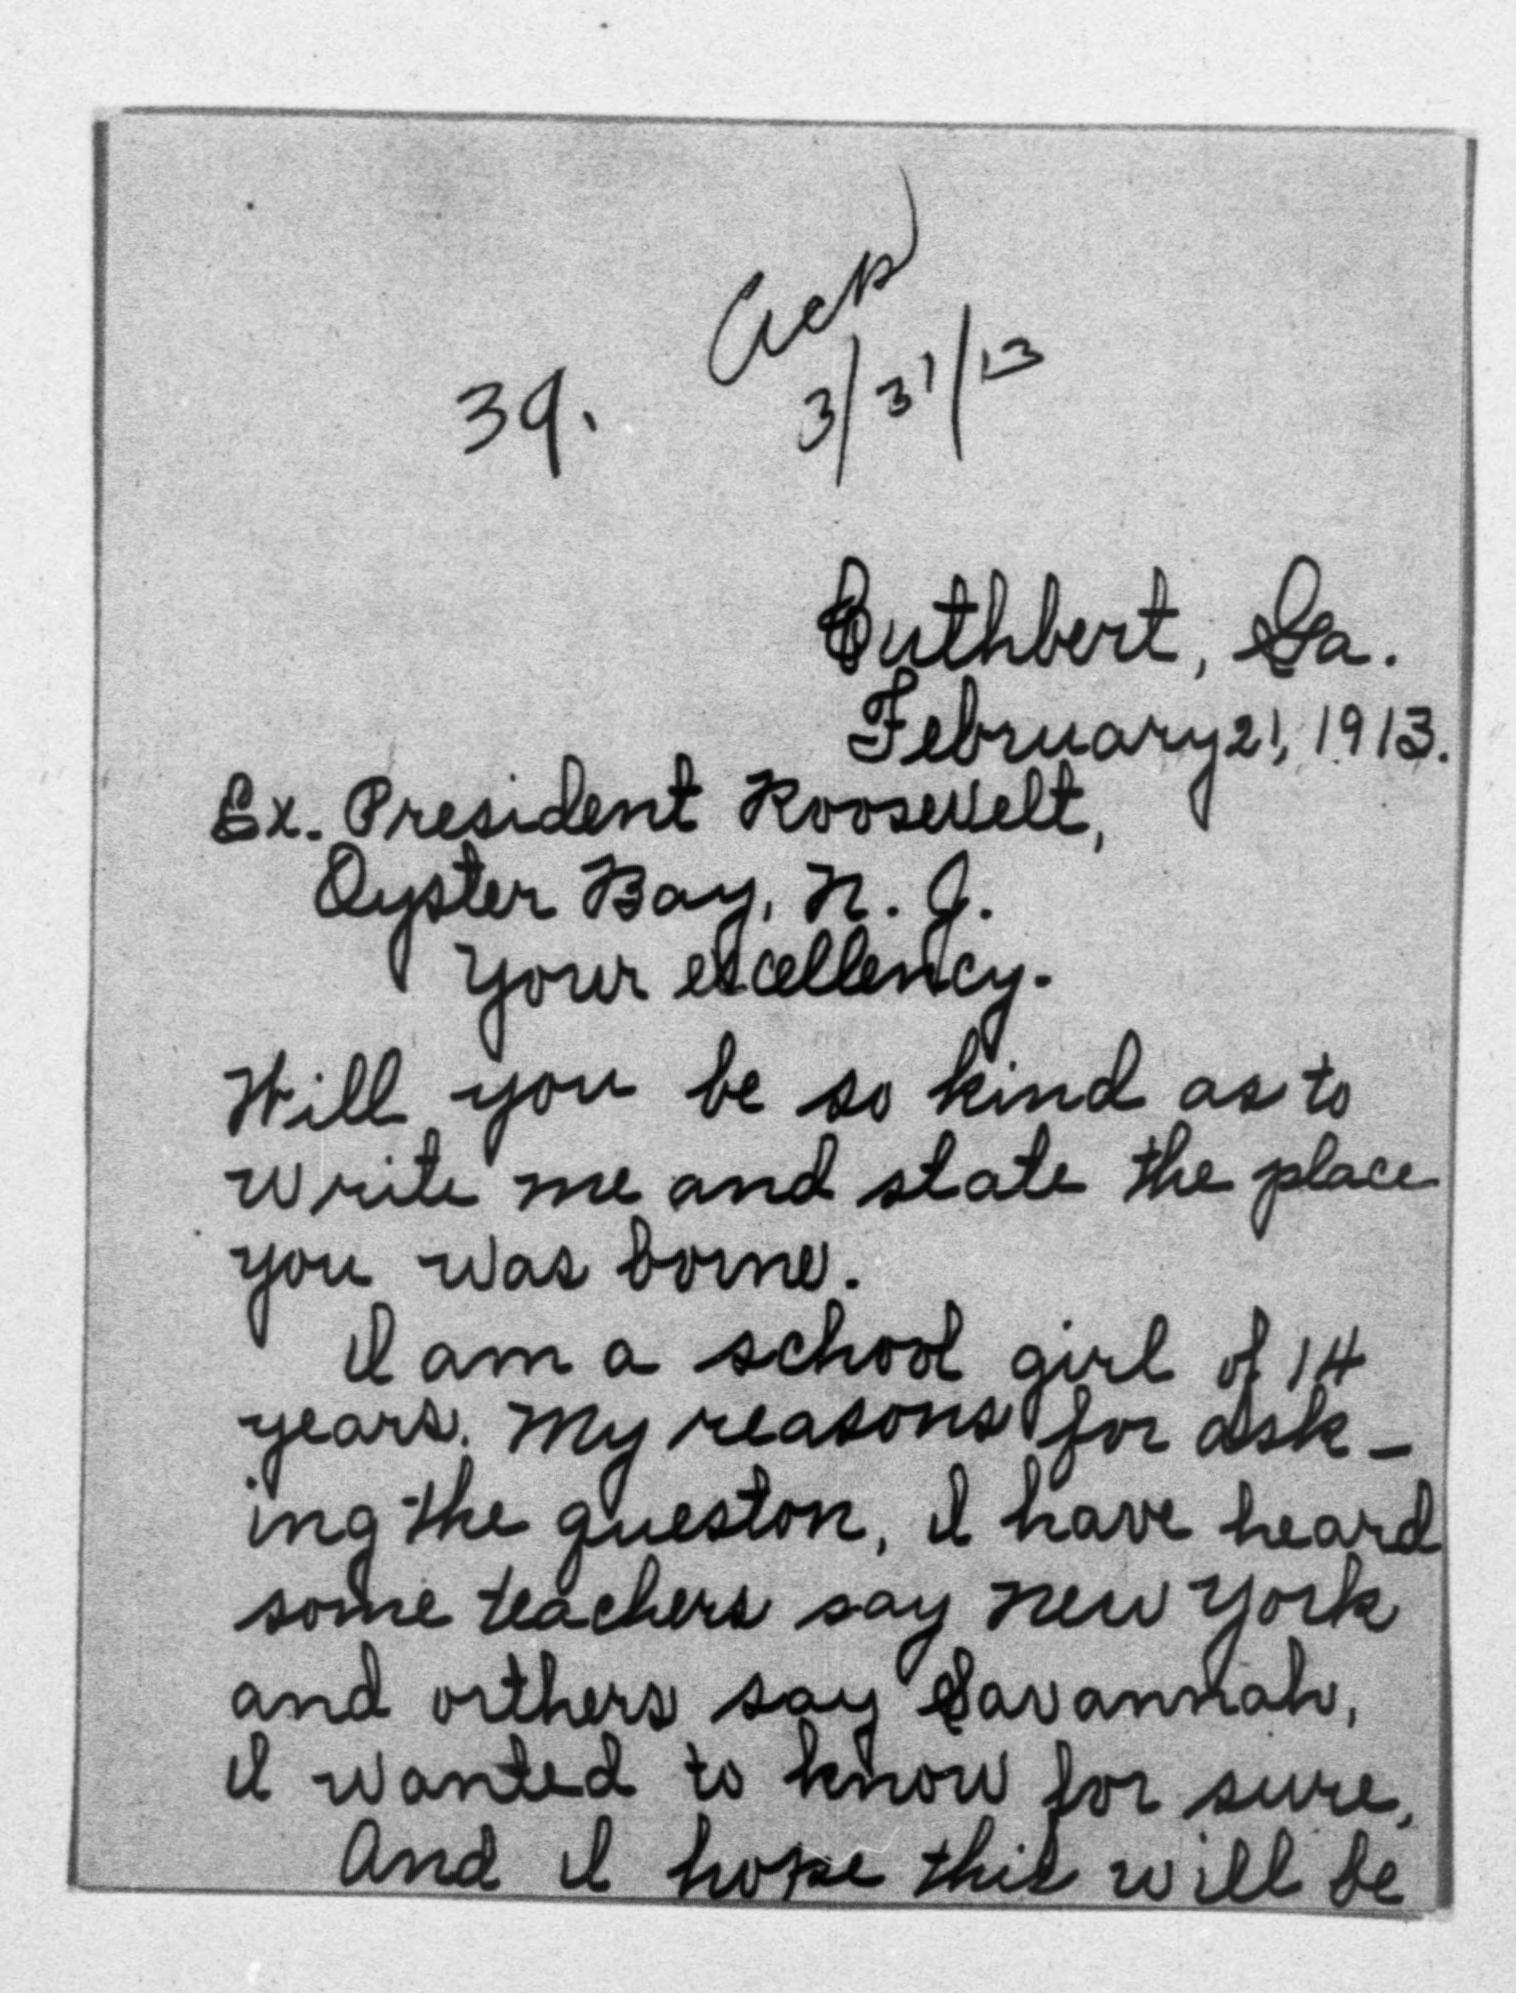 Ack
39. 3/31/13
Cuthbert, Ga.
February 21, 1913.
Ex. President Roosevelt,
Oyster Bay, N. J.
Your excellency.
Will you be so kind as to
write me and state the place
you was borne.
I am a school girl of 14
years. My reasons for ask-
ing the queston, I have heard
some teachers say New York
and orthers say Savannah,
I wanted to know for sure,
And I hope this will be